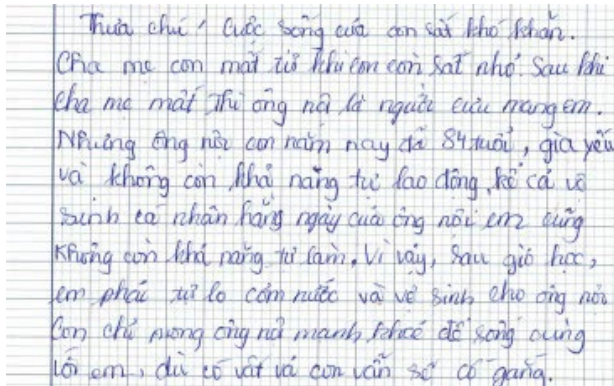 Thưa chú, Cuộc sống của con rất khó khăn.
Cha mẹ con mất từ khi con còn rất nhỏ. Sau khi
cha mẹ mất thì ông nội là người cưu mang em.
Nhưng ông nội con năm nay đã 84 tuổi, già yếu
và không còn khả năng tự lao động, kể cả vệ
sinh cá nhân hằng ngày của ông nội em cũng
không còn khả năng tự làm. Vì vậy, sau giờ học,
em phải tự lo cơm nước và vệ sinh cho ông nội
Con chỉ mong ông nội mạnh khoẻ để sống cùng
với em, dù có vất vả con vẫn sẽ cố gắng.